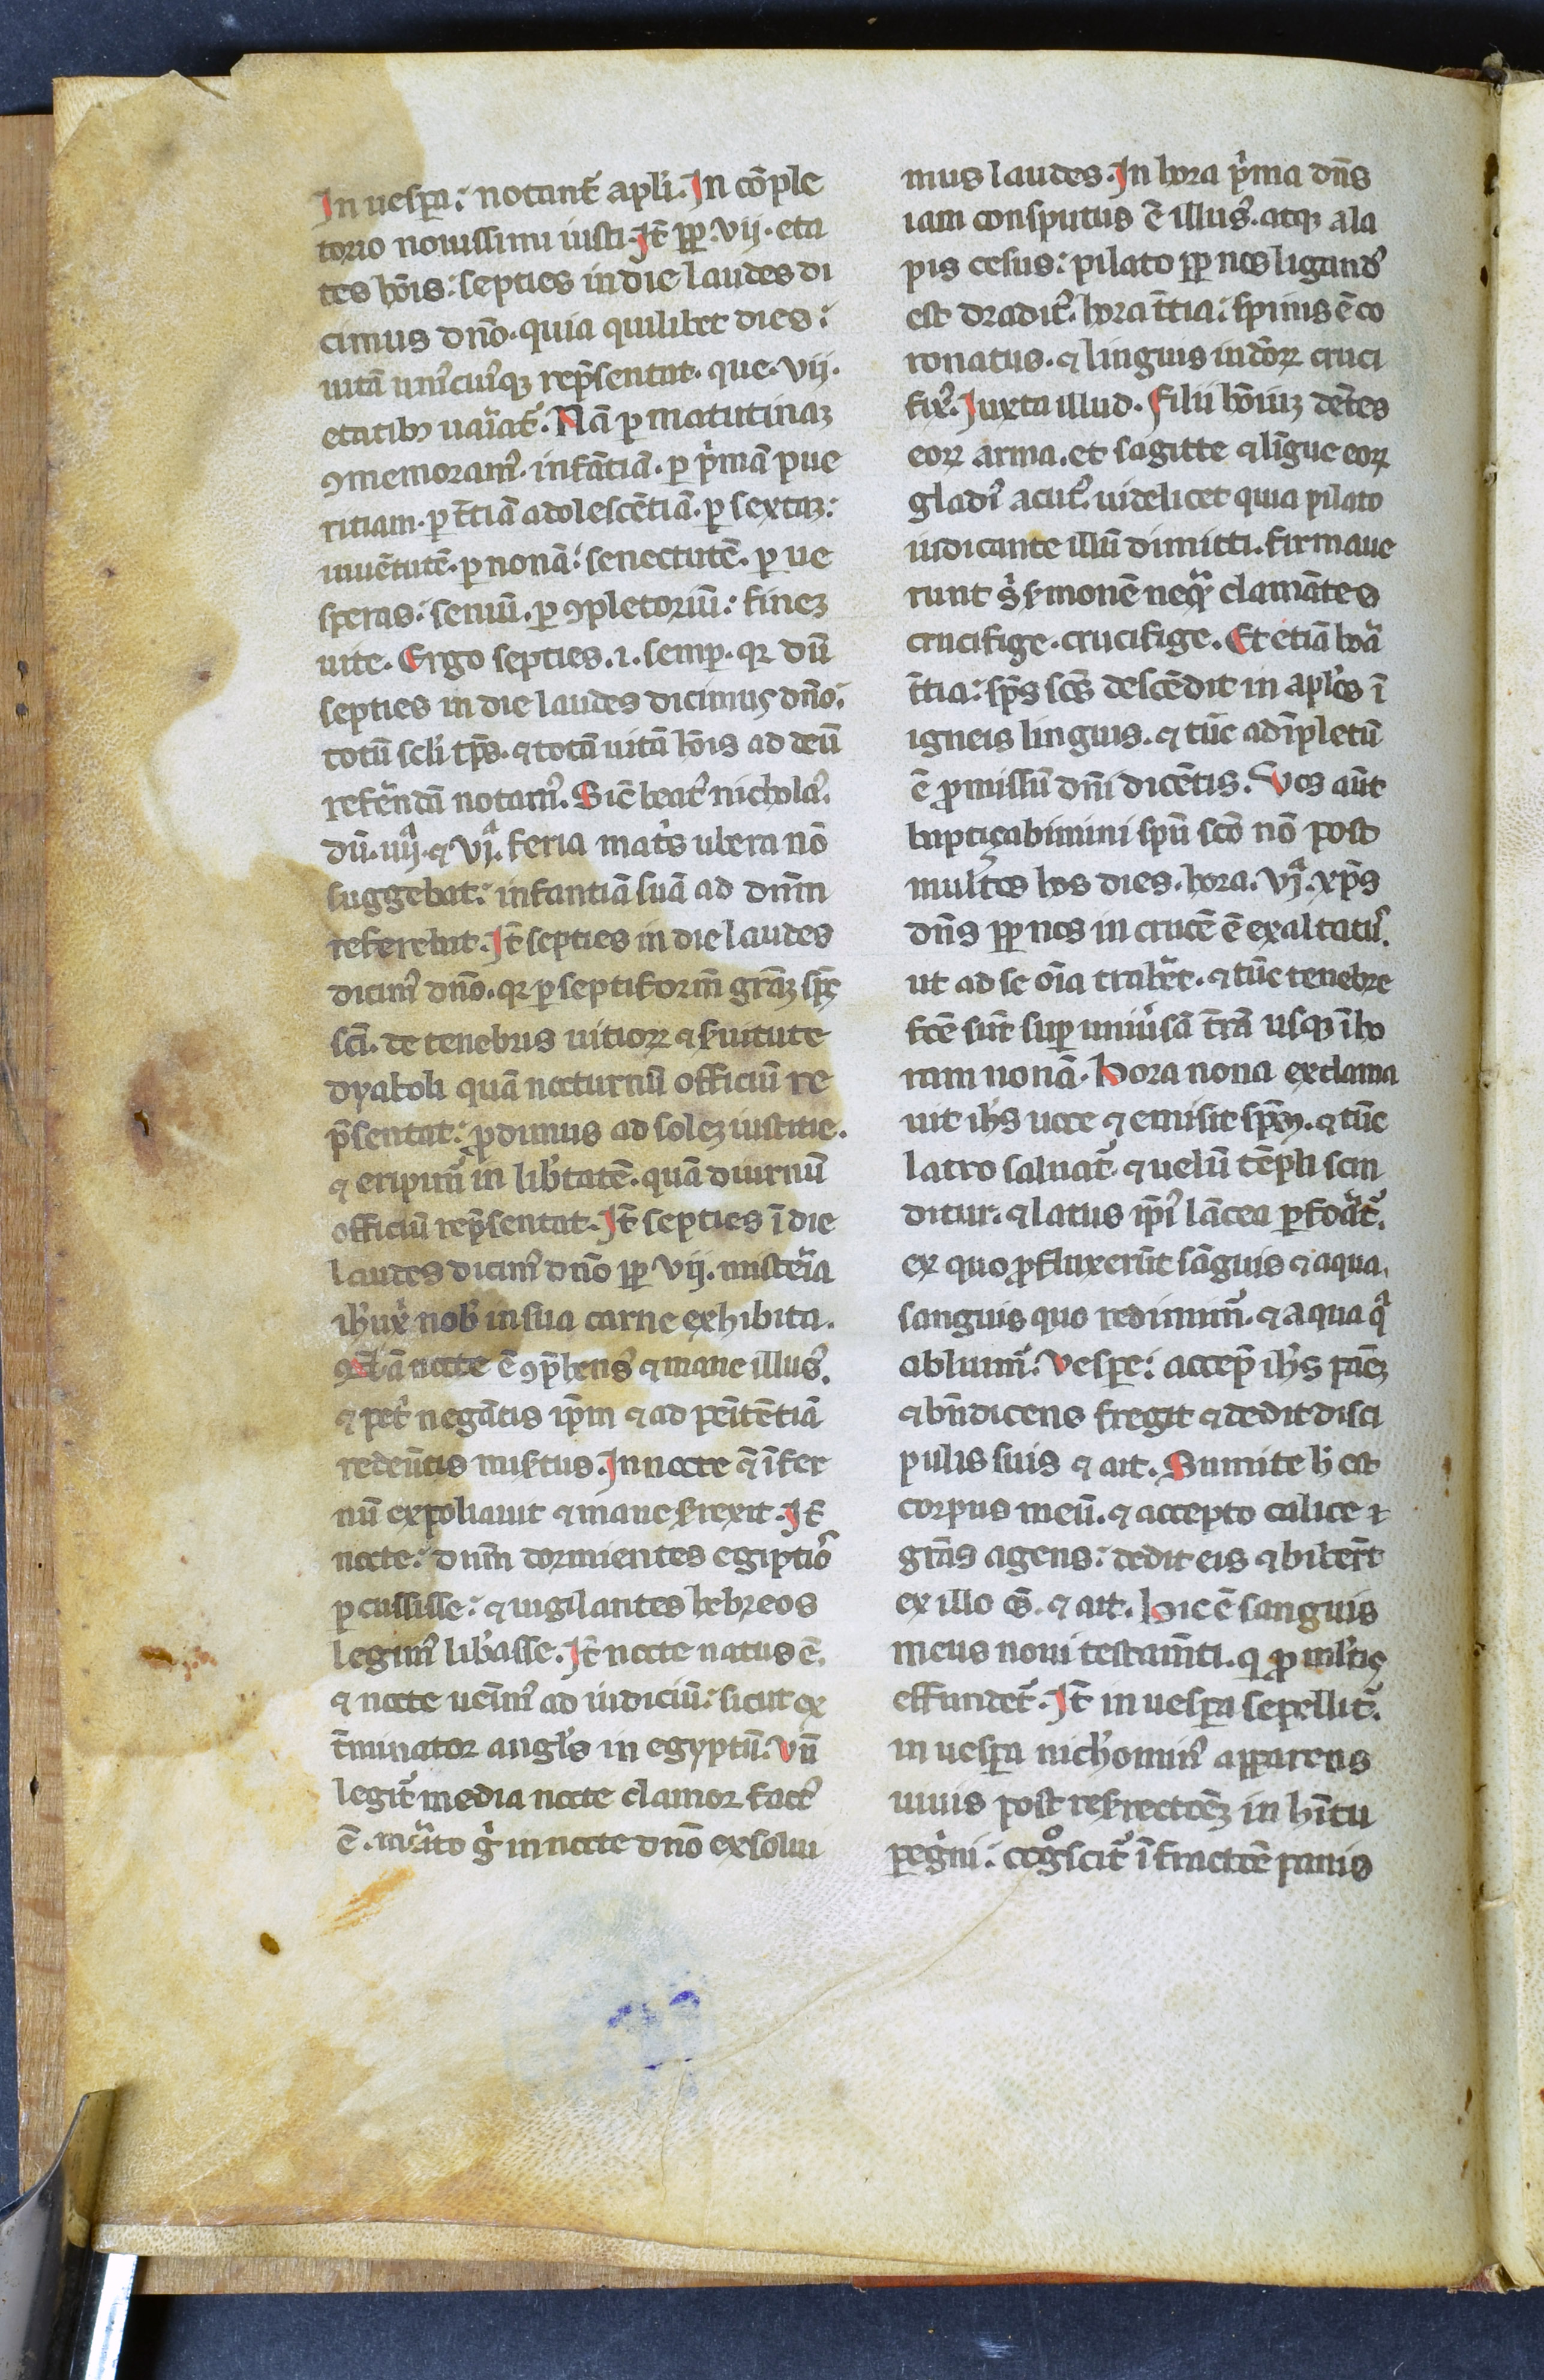 In uesꝑa: notant᷒ apl'i. In cōple
torio nouissimi iusti. It̄ ꝓp̄ .vij. eta
tes ho̅is: septies in die laudes di
cimus dn̄o. quia quilibet dies:
uitā uni᷒cui᷒qꝫ rep̄sentat. que .vij.
etatibꝫ uariat᷒. Nā ꝑ matutinaꝫ
ꝯmemoram᷒ infātiā. ꝑ p'mā pue
ritiam. ꝑ t̄tiā adolescētiā. ꝑ sextaꝫ:
iuuētutē. ꝑ nonā: senectutē. ꝑ ue
speras: seniū. ꝑ ꝯpletoriū: fineꝫ
uite. Ergo septies .i. semꝑ. qꝛ dū
septies in die laudes dicimus dn̄o:
totū scl'i tp̄s. ⁊ totā uitā ho̅is ad deū
referēdā notam᷒. Sic beat᷒ nichola᷒.
dū .iiij.ᵃ ⁊ vj.ᵃ feria mat's ubera nō
suggebat: infantiā suā ad dn̄m
referebat. It̄ septies in die laudes
dicim᷒ dn̄o. qꝛ ꝑ septiformē grāꝫ sp̄c
sc̄i. de tenebris uitioꝝ ⁊ s'uitute
dyaboli quā nocturnū officiū re
p̄sentat: ꝓdimus ad soleꝫ iustitie.
⁊ eripim᷒ in lib'tatē. quā diurnū
officiū rep̄sentat. It̄ septies ī die
laudes dicim᷒ dn̄o ꝓp̄ vij. misteria
ih'u xp̄i nob' in sua carne exhibita.
Nā nocte ē ꝯp̄hens᷒ ⁊ mane illus᷒.
⁊ pet' negātis ip̄m ⁊ ad penitētiā
redeūtis mis'tus. In nocte ⁊̄ īfer
nū expoliauit ⁊ mane s'rexit. It̄
nocte: dn̄m dormientes egiptio᷒
ꝑcussisse: ⁊ uigilantes hebreos
legim᷒ lib'asse. It̄ nocte natus ē.
⁊ nocte ueniet᷒ ad iudiciū: sicut ex
t̄minator angl's in egyptū. Vn̄
legit᷒ media nocte clamor fact᷒
ē. merito g' in nocte dn̄o exsolui
mus laudes. In hora p'ma dn̄s
iam consputus ē illus᷒. atqꝫ ala
pis cesus: pilato ꝓp̄ nos ligand᷒
est tradit᷒. hora t̄tia: spinis ē co
ronatus. ⁊ linguis iudeoꝝ cruci
fix᷒. Juxta illud. Filii ho̅iuꝫ dētes
eoꝝ arma. et sagitte ⁊ līgue eoꝝ
gladi᷒ acut᷒. uidelicet quia pilato
iudicante illū dimitti. firmaue
runt s' s'monē neqᵃ clamātes
crucifige. crucifige. Et etiā hoᵃ
t̄tia: sp̄s sc̄s descēdit in apl'os ī
igneis linguis. ⁊ tūc adīpletū
ē ꝓmissū dn̄i dicētis. Vos aūt
baptiçabimini spū scō nō post
mul'tos hos dies. hora. vj.ᵃ xp̄s
dn̄s ꝓp̄ nos in crucē ē exaltatu᷒.
ut ad se oīa trah'et. ⁊ tūc tenebre
fc̄e sūt suꝑ uniu'sā t̄rā usqꝫ ī ho
ram nonā. Hora nona exclama
uit ih's uoce ⁊ emisit sp̄m. ⁊ tūc
latro saluat᷒ ⁊ uelū tēpli scin
ditur. ⁊ latus ip̄i᷒ lācea ꝑforat᷒.
ex quo ꝓfluxerūt sāguis ⁊ aqua.
sanguis quo redimim᷒. ⁊ aqua qᵃ
abluim᷒. Vesꝑe: accep̄ ih's pāeꝫ
⁊ bn̄dicens fregit ⁊ dedit disci
pulis suis ⁊ ait. Sumite h' est
corpus meū. ⁊ accepto calice ⁊
grās agens: dedit eis ⁊ biber̄t
ex illo oēs. ⁊ ait. Hic ē sanguis
meus noui testam̄ti. q' ꝓ multis
effundet᷒. It̄ in uesꝑa sepellit᷒.
in uesꝑa nich'omin᷒ apparens
uiuis post res'rectōeꝫ in hītu
peg'ni: cogᵒscit᷒ ī fractōē panis